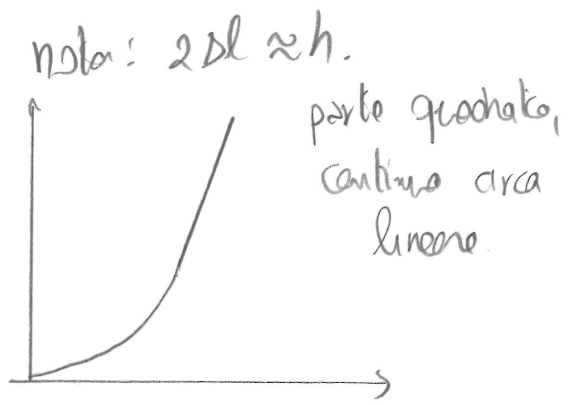 nota: 2Δl ≈ h.
parte quadratica,
continua circa
lineare.